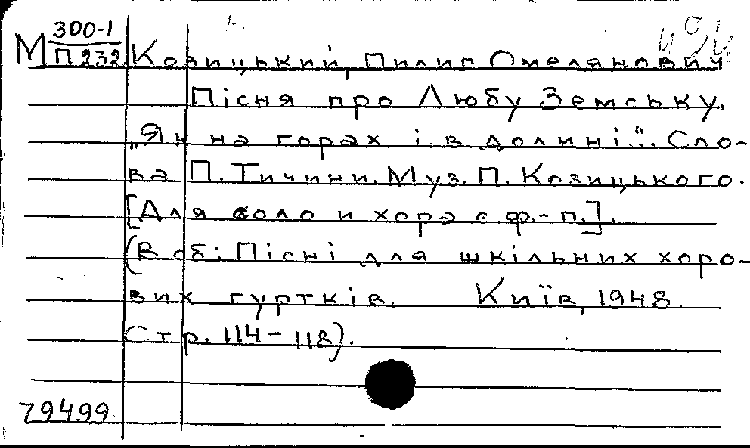 М 300-1
П 232 Козицький, Пилип Омелянович
Пісня про Любу Земську.
„Як на горах і в долині". Сло-
ва П. Тичини. Муз. П. Козицького.
[Для соло и хора с ф.-п.].
(В сб: Пісні для шкільних хоро-
вих гуртків. Київ, 1948.
Стр. 114-118).
79499